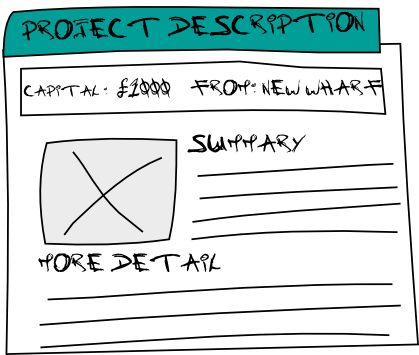 PROJECT DESCRIPTION
CAPITAL: £1000 FROM: NEW WHARF
SUMMARY
MORE DETAIL